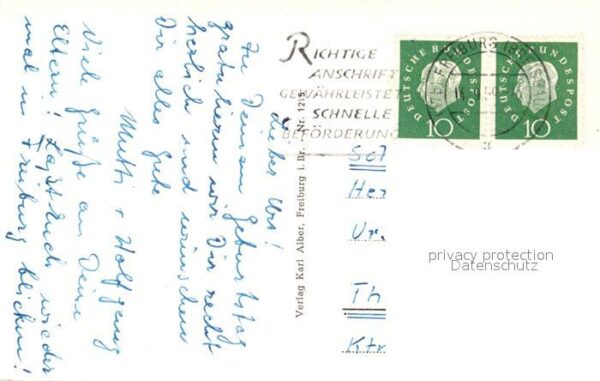 Lieber Urs!
Zu Deinem Geburtstag
gratulieren wir Dir recht
herzlich und wünschen
Dir alles Gute
Mutti + Wolfgang
Viele Grüße an Deine
Eltern! Laßt Euch wieder
mal in Freiburg blicken!
Verlag Karl Alber, Freiburg i. Br. - Nr. 1215
RICHTIGE
ANSCHRIFT
GEWÄHRLEISTET
SCHNELLE
BEFÖRDERUNG
FREIBURG (BREISGAU)
DEUTSCHE BUNDESPOST
10
DEUTSCHE BUNDESPOST
10
Sch
Her
Ur.
Th
Ktr
privacy protection
Datenschutz